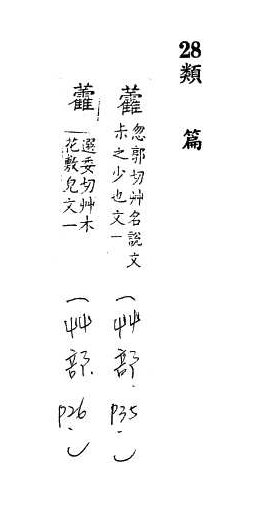 28類 篇
藿 忽郭切艸名說文
尗之少也文一
(艸部. p35.)
蘳 選委切艸木
花敷皃文一
(艸部. p26.)